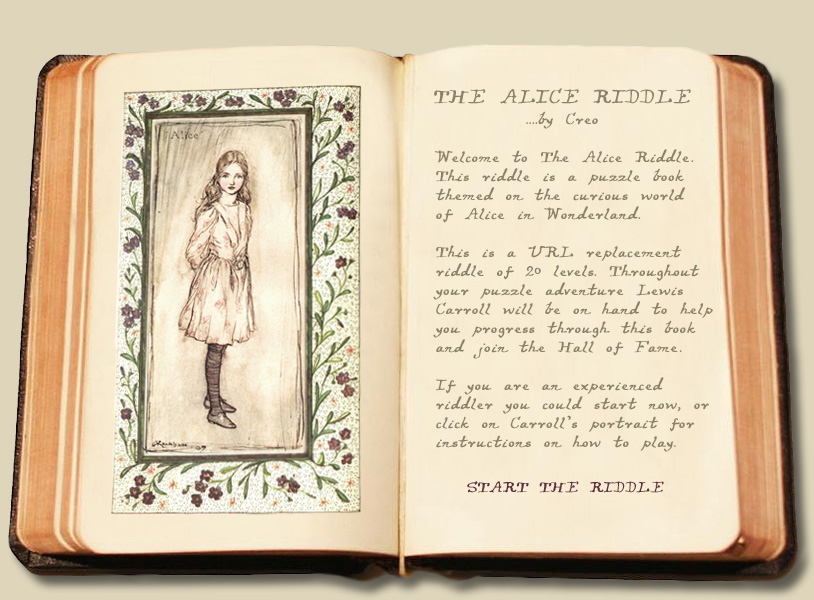 "Alice"
THE ALICE RIDDLE
....by Creo
Welcome to The Alice Riddle.
This riddle is a puzzle book
themed on the curious world
of Alice in Wonderland.
This is a URL replacement
riddle of 20 levels. Throughout
your puzzle adventure Lewis
Carroll will be on hand to help
you progress through this book
and join the Hall of Fame.
If you are an experienced
riddler you could start now, or
click on Carroll's portrait for
instructions on how to play.
START THE RIDDLE